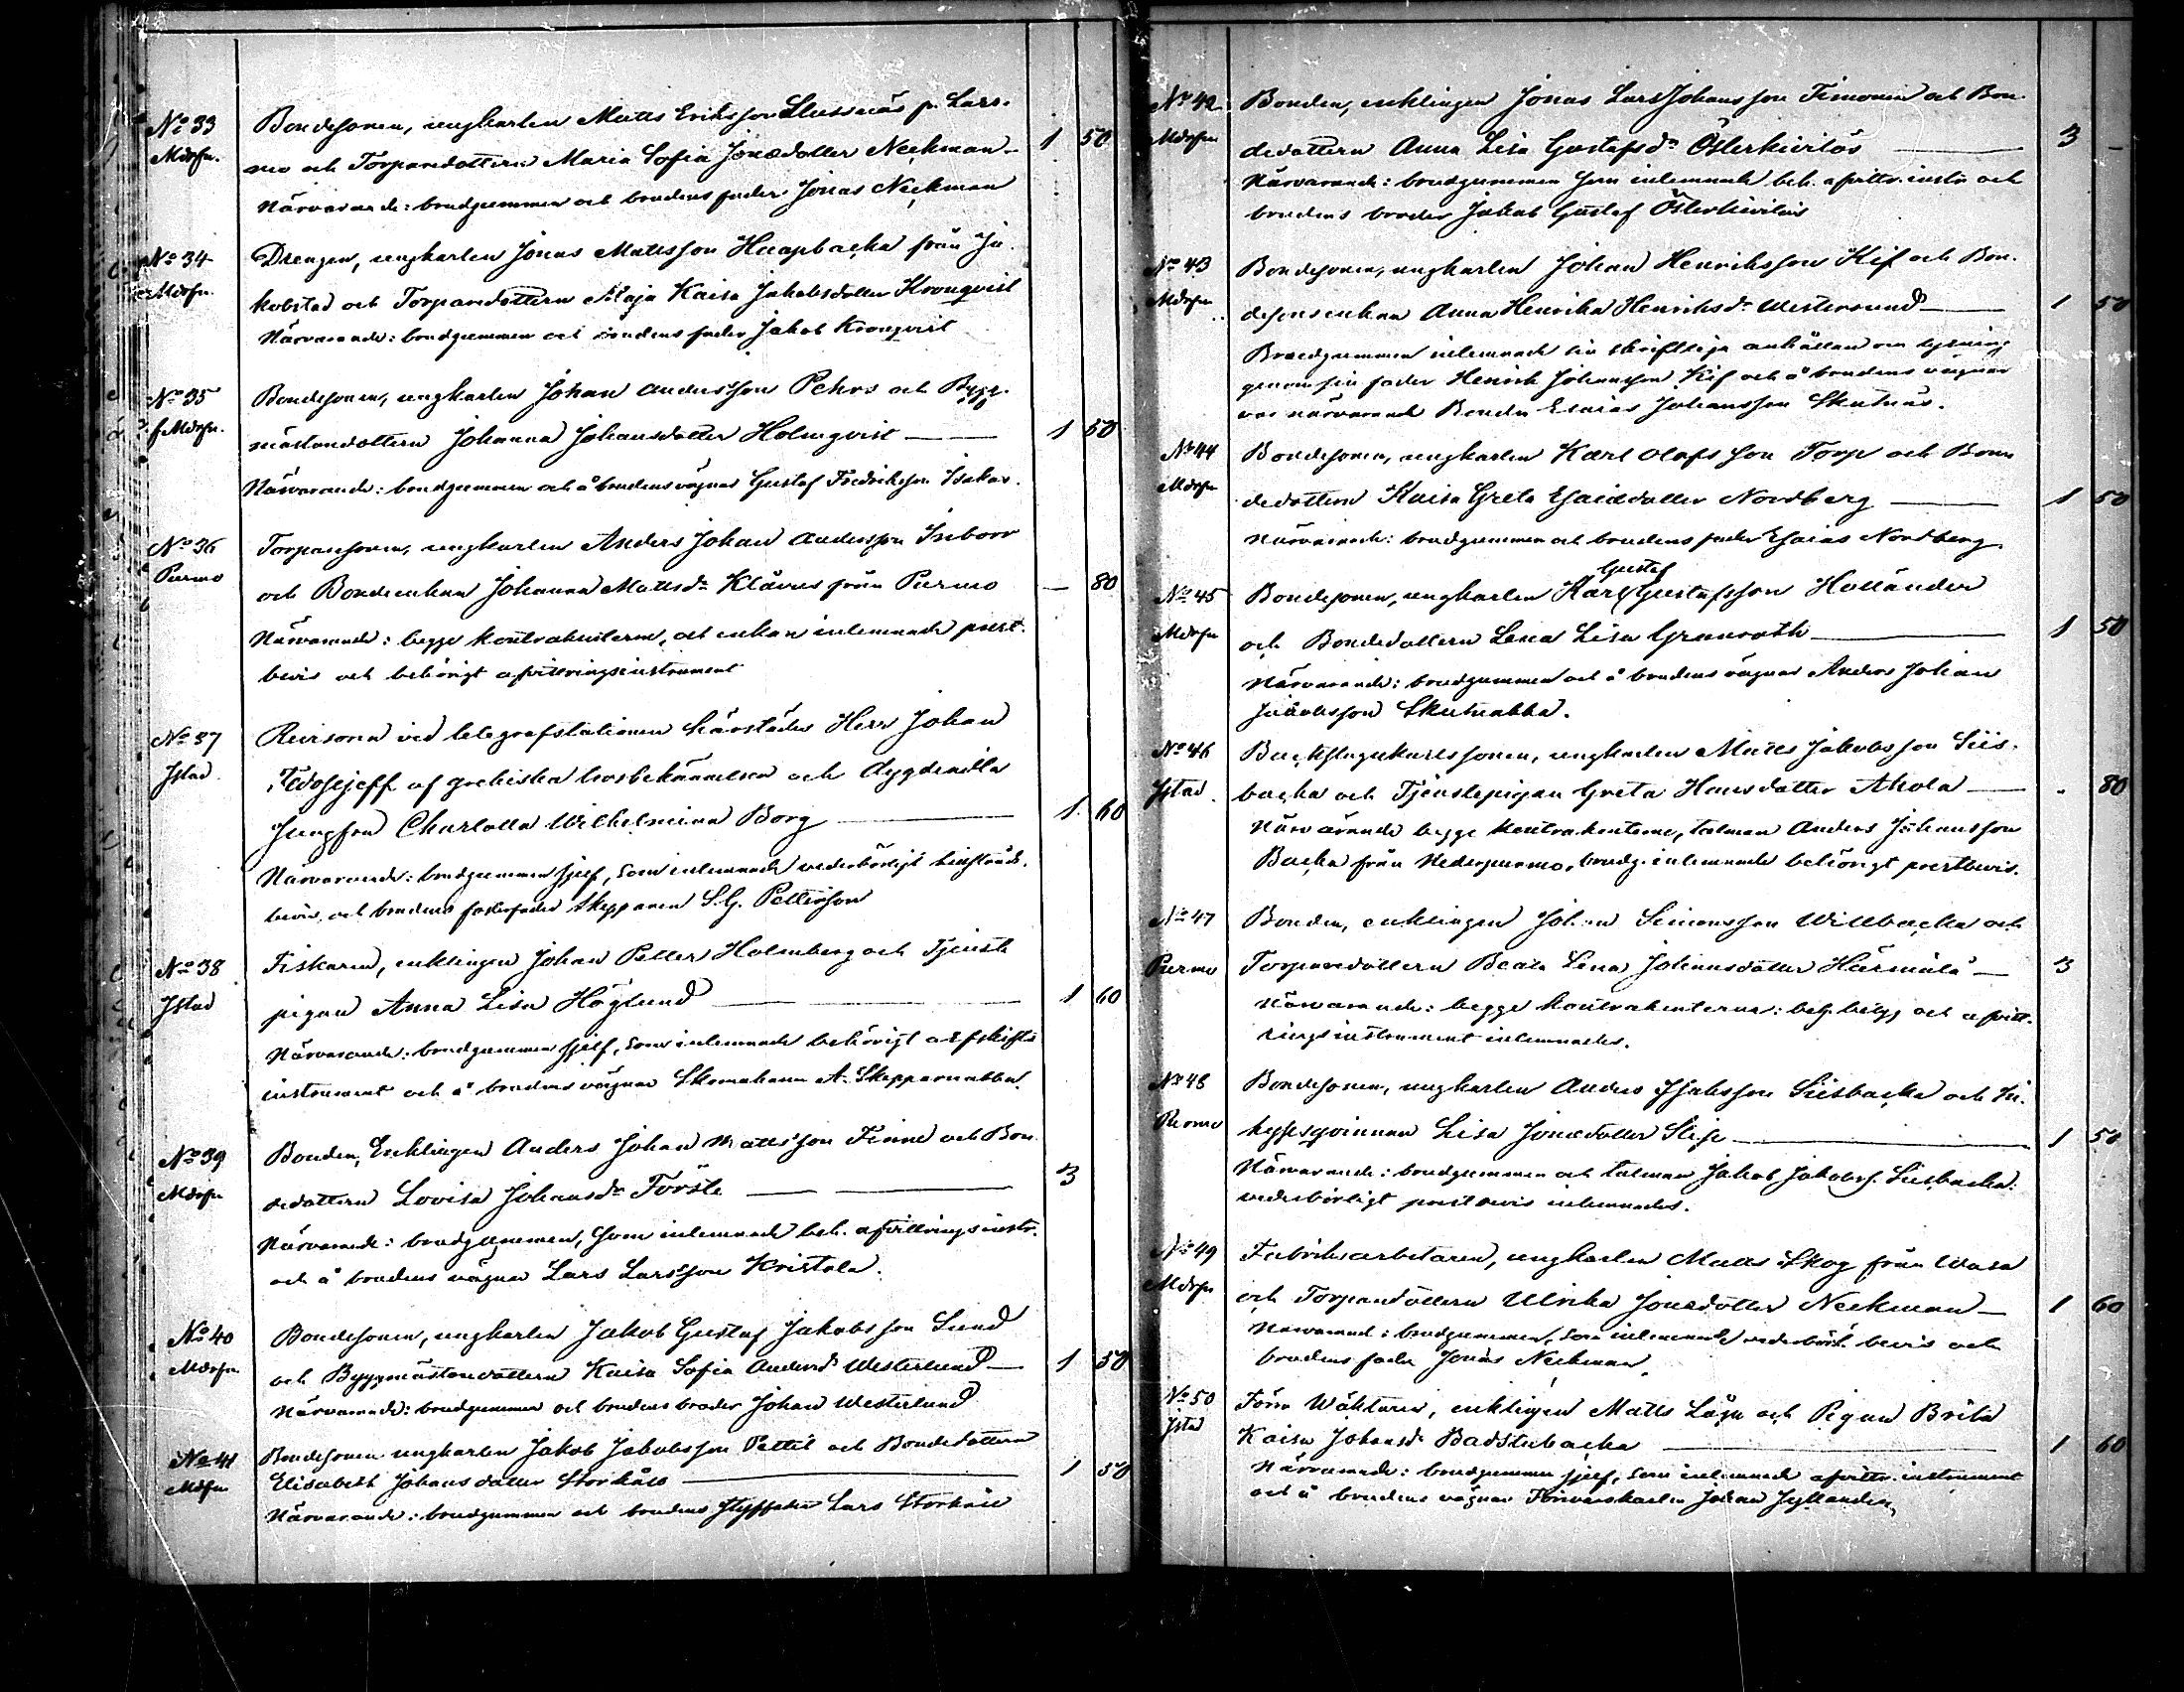 No 33 Bondesonen, ungkarlen Matts Eriksson Slussnäs p. Lars-
Mdrsn. mo och Torparedottern Maria Sofia Jonædotter Neckman 1 50
Närvarande: brudgummen och brudens fader Jonas Neckman
No 34 Drengen, ungkarlen Jonas Mattsson Haapbacka från Ja-
Mdrsn. kobstad och Torparedottern Maja Kaisa Jakobsdotter Kronqvist
Närvarande: brudgummen och brudens fader Jakob Kronqvist
No 35 Bondesonen, ungkarlen Johan Andersson Pehrs och Bygg-
Mdrsn. mästaredottern Johanna Johansdotter Holmqvist 1 50
Närvarande: brudgummen och å brudens vägnar Gustaf Fredriksson Isakas.
No 36 Torparesonen, ungkarlen Anders Johan Andersson Inborr
Purmo och Bondeenkan Johanna Mattsdr Klåvus från Purmo — 80
Närvarande: begge kontrahenterne, och enkan inlemnade prest-
bevis och behörigt afvittringsinstrument
No 37 Revisorn vid telegrafstationen härstädes Herr Johan
Jstad. Fedosejeff af grekiska trosbekännelsen och dygdenilla
Jungfrun Charlotta Wilhelmina Borg 1 60
Närvarande: brudgummen sjelf, som inlemnade vederbörligt
bevis, och brudens fosterfader Skepparen S. G. Petterson
No 38 Fiskaren, enklingen Johan Petter Holmberg och Tjenste
Jstad pigan Anna Lisa Höglund 1 60
Närvarande: brudgummen sjelf, som inlemnade behörigt arfskifts
instrument och å brudens vägnar A. Skepparnabba.
No 39 Bonden, Enklingen Anders Johan Mattsson Finne och Bon
Mdrsn dedottern Lovisa Johansdr Förste 3
Närvarande: brudgummen, som inlemnade beh. afvittringsinstr.
och å brudens vägnar Lars Larsson Kristola.
No 40 Bondesonen, ungkarlen Jakob Gustaf Jakobsson Sund
Mdrsn och Byggmästaredottern Kaisa Sofia Andersdr Westerlund 1 50
Närvarande: brudgummen och brudens broder Johan Westerlund
No 41 Bondesonen ungkarlen Jakob Jakobsson Pettil och Bondedottern
Mdrsn Elisabeth Johansdotter Storkåll 1 50
Närvarande: brudgummen och brudens styffader Lars Storkåll
No 42 Bonden, enklingen Jonas Lars Johansson Finnonen och Bon-
Mdrsn dedottern Anna Lisa Gustafsdr Österkivilös 3 —
Närvarande: brudgummen som inlemnade beh. afvittr. instr och
brudens broder Jakob Gustaf Österkivilös
No 43 Bondesonen, ungkarlen Johan Henriksson Kif och Bon-
Mdrsn desonsenkan Anna Henrika Henriksdr Westersund 1 50
Brudgummen inlemnade sin skriftliga anhållan om lysning
genom sin fader Henrik Johansson Kif och å brudens vägnar
var närvarande Bonden Esaias Johansson Skutnäs.
No 44 Bondesonen, ungkarlen Karl Olofsson Torp och Bonn
Mdrsn dedottern Kaisa Greta Esaiædotter Nordberg 1 50
Närvarande: brudgummen och brudens fader Esaias Nordberg.
Gustaf
No 45 Bondesonen, ungkarlen Karl Gustafsson Holländer
Mdrsn och Bondedottern Lena Lisa Granroth 1 50
Närvarande: brudgummen och å brudens vägnar Anders Johan
Jakobsson Skutnabba.
No 46 Backstugukarlssonen, ungkarlen Matts Jakobsson Siis-
Jstad. backa och Tjenstepigan Greta Hansdotter Ahola - 80
Närvarande begge kontrahenterne, talman Anders Johansson
Backa från Nederpurmo, brudg. inlemnade behörigt prestbevis.
No 47 Bonden, enklingen Johan Simonsson Willbacka och
Purmo Torparedottern Beata Lena Johansdotter Härmälä 3
Närvarande: begge kontrahenterna: beh. betyg och afvitt-
ringsinstrument inlemnades.
No 48 Bondesonen, ungkarlen Anders Isaksson Siisbacka och In-
Purmo hysesqvinnan Lisa Jonædotter Slip 1 50
Närvarande: brudgummen och talman Jakob Jakobss. Siisbacka:
vederbörligt prestbevis inlemnades.
No 49 Fabriksarbetaren, ungkarlen Matts Skog från Wasa
Mdrsn och Torparedottern Ulrika Jonædotter Neckman 1 60
Närvarand: brudgummen, som inlemnade vederbörl. bevis och
brudens fader Jonas Neckman.
No 50 Förra Wäktaren, enklingen Matts Lågn och Pigan Brita
Jstad Kaisa Johansdr Badstubacka 1 60
Närvarande: brudgummen sjelf, som inlemnade afvittr. instrument
och å brudens vägnar Johan Jyllander,